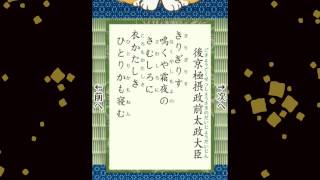 →次へ
後京極摂政前太政大臣
きりぎりす
鳴くや霜夜の
さむしろに
衣かたしき
ひとりかも寝む
←前へ